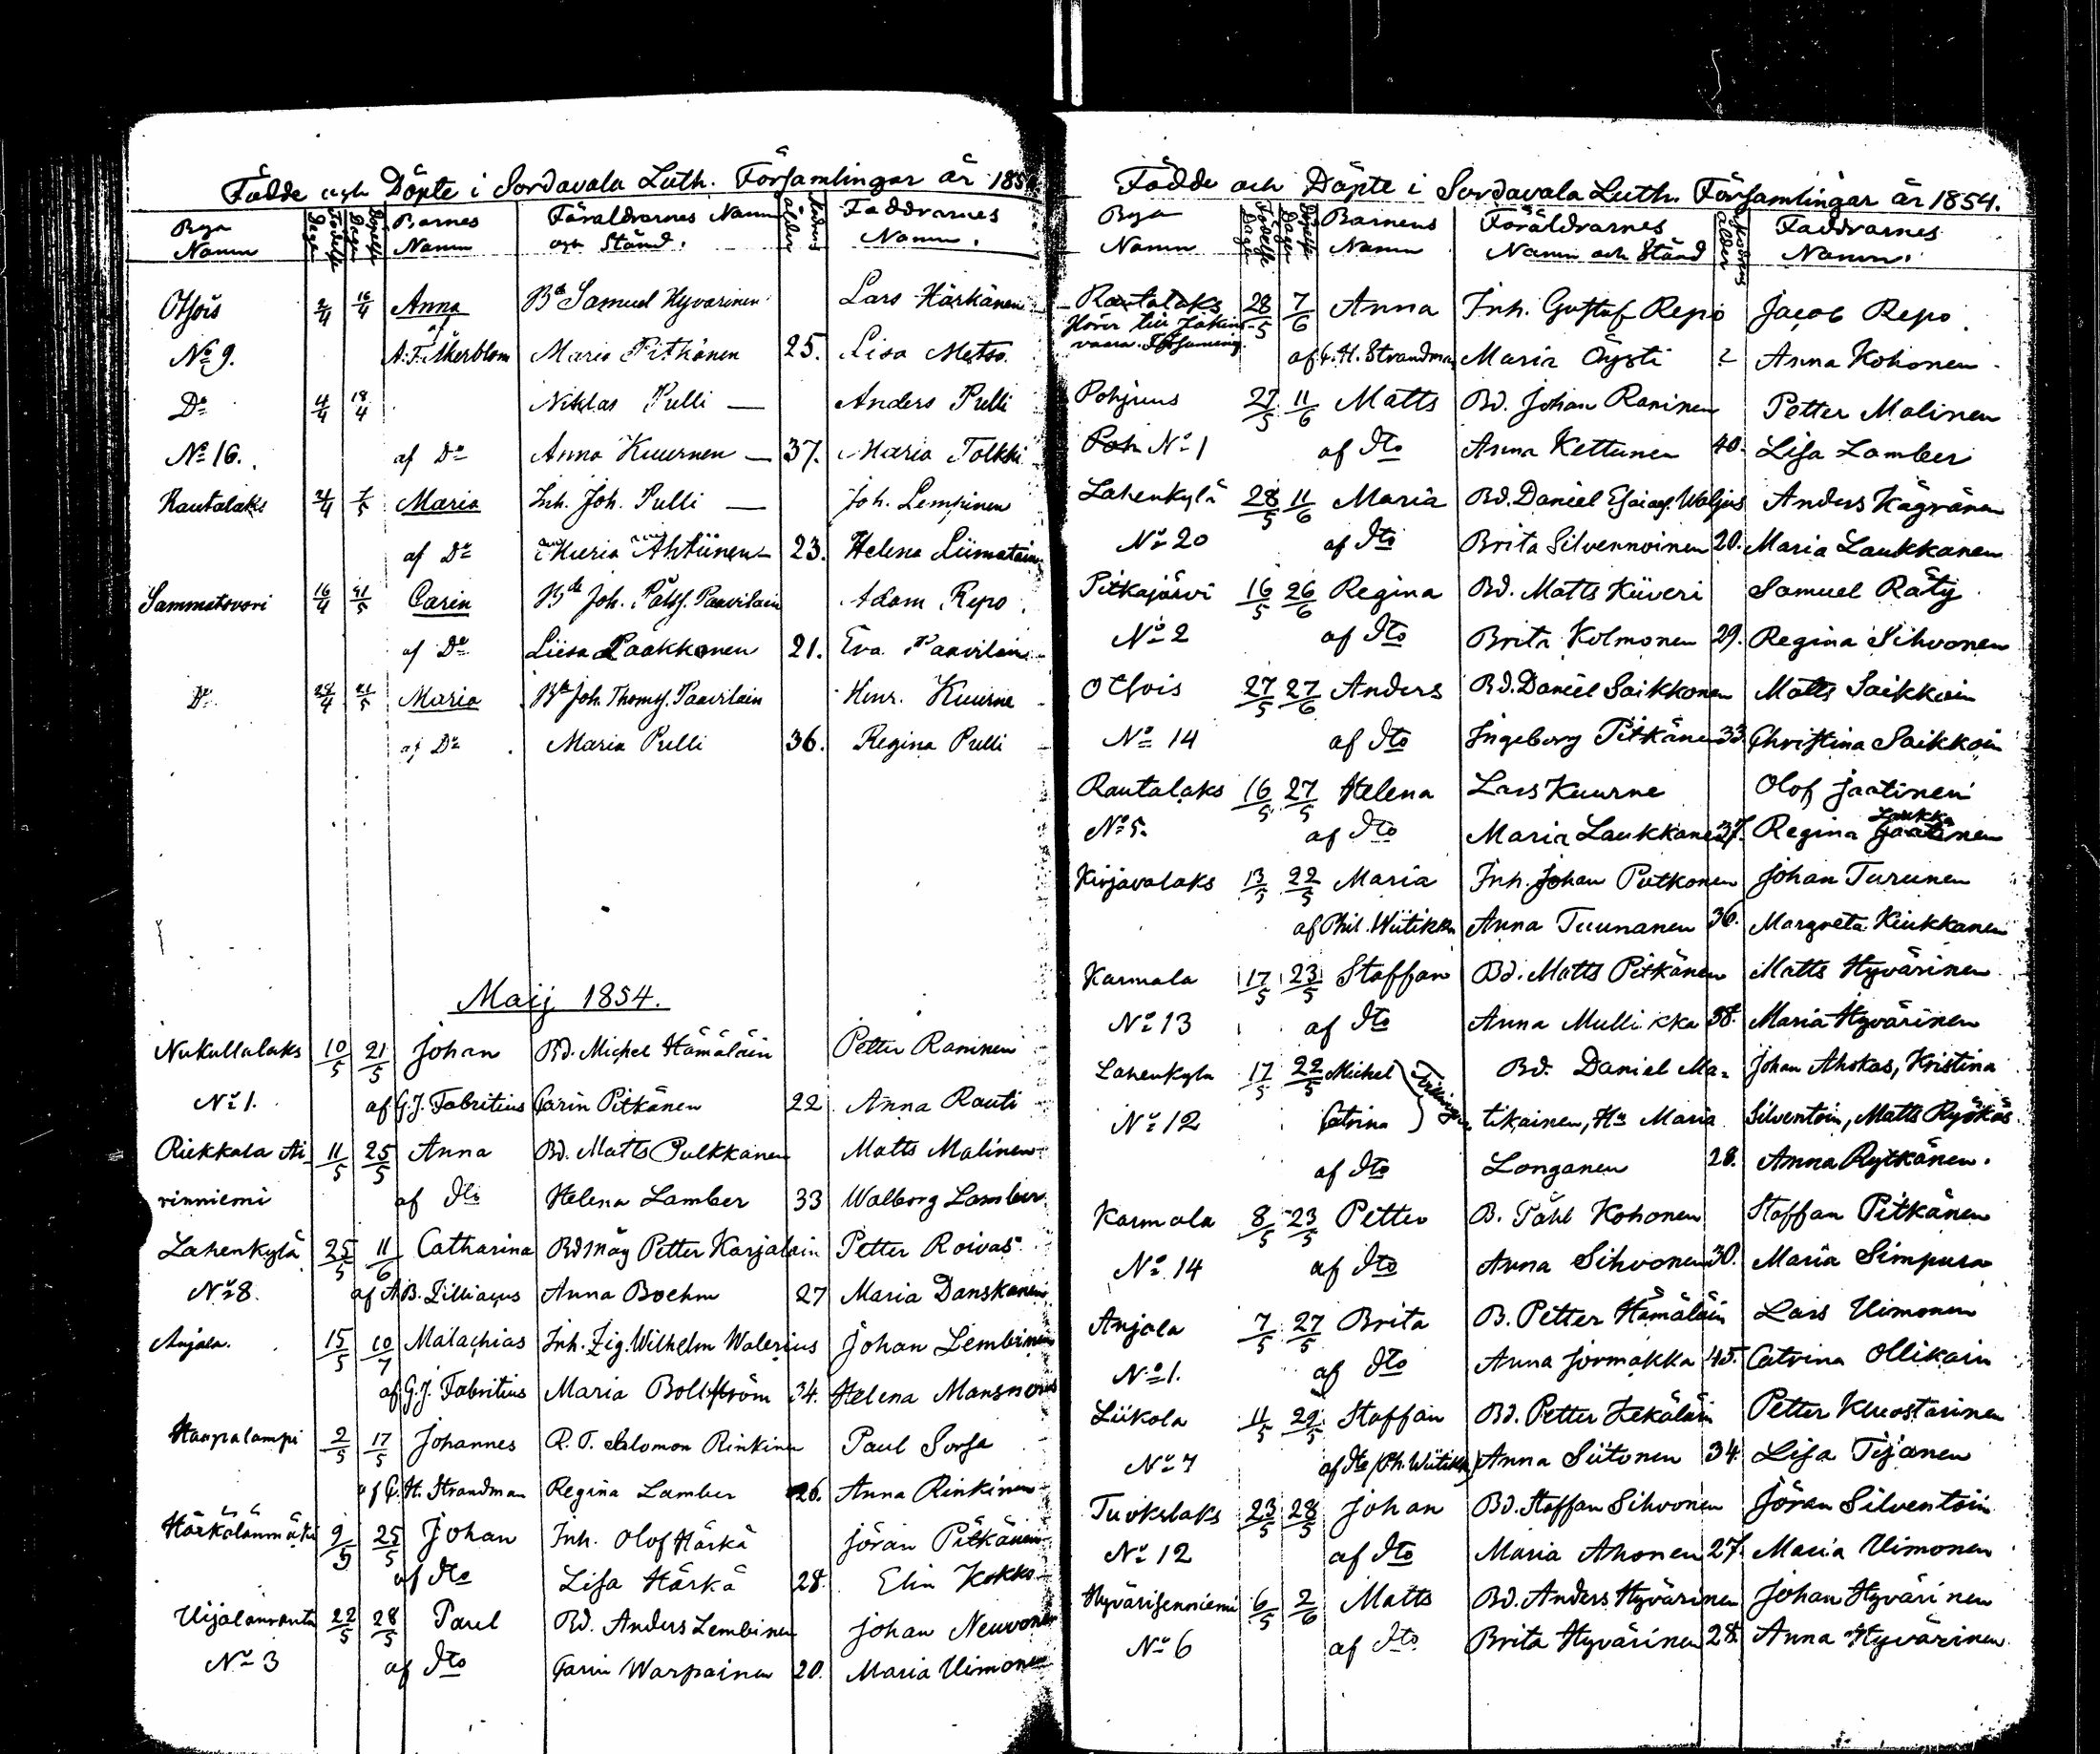 Födde och Döpte i Sordavala Luth. Församlingar år 185
Bya Namn Födelse Dagen Döpelse Dagen Barnes Namn Föräldrarnes Namn och Stånd. Modrens ålder Faddrarnes Namn.
Otsois 2/4 16/4 Anna Bd Samuel Hyvärinen Lars Härkänen
No 9. af A. F. Åkerblom Maria Pitkänen 25. Lisa Metso.
Do 4/4 18/4 Niklas Pulli — Anders Pulli
No 16. af Do Anna Kuurnen — 37. Maria Tolkki
Rautalaks 4/4 7/5 Maria Inh. Joh. Pulli — Joh. Lempinen
af Do Maria Ahtiinen 23. Helena Liimatain
Sammatsvori 16/4 21/5 Carin Bde Joh. Pålss. Paavilain Adam Repo
af Do Liisa Paakkonen 21. Eva Paavilain
Do 24/4 21/5 Maria Bde Joh. Thomss. Paavilain Henr. Kuurne
af Do Maria Pulli 36. Regina Pulli
Maij 1854.
Nukuttalaks 10/5 21/5 Johan Bd. Michel Hämäläin Petter Raninen
No 1. af G. J. Fabritius Carin Pitkänen 22 Anna Rauti
Riekkala Ai- 11/5 25/5 Anna Bd. Matts Pulkkanen Matts Malinen
rinniemi af Dto Helena Lamber 33 Walborg Lamber
Lahenkylä 25/5 11/6 Catharina Bdmåg Petter Karjalain Petter Roivas
No 8. af A B. Zilliacus Anna Boehm 27 Maria Danskanen
Anjala. 15/5 10/7 Malachias Inh. Zig. Wilhelm Walerius Johan Lembinen
af G. J. Fabritius Maria Bollström 34. Helena Mansnerus
Haapalampi 2/5 17/5 Johannes R. T. Salomon Rinkinen Paul Sorsa
af G. H. Strandman Regina Lamber 26. Anna Rinkinen
Härkälänmäki 9/5 25/5 Johan Inh. Olof Härkä Jöran Pitkänen
af Dto Lisa Härkä 28. Elin Kokko
Uijalanranta 22/5 28/5 Paul Bd. Anders Lembinen Johan Neuvonen
No 3 af Dto Carin Warpainen 20. Maria Uimonen
Födde och Döpte i Sordavala Luth. Församlingar år 1854.
Bya Namn Födelse Dagen Döpelse Dagen Barnens Namn Föräldrarnes Namn och Stånd Modrens ålder Faddrarnes Namn.
Rautalaks 28/5 7/6 Anna Inh. Gustaf Repo Jacob Repo
Hörer till Jakim-
vaara af G. H. Strandman Maria Öysti ? Anna Kohonen
Pohjuus 27/5 11/6 Matts Bd. Johan Raninen Petter Malinen
Poh No 1 af Dto Anna Kettunen 40. Lisa Lamber
Lahenkylä 28/5 11/6 Maria Bd. Daniel Esaiass. Waljus Anders Kägränen
No 20 af Dto Brita Silvennoinen 20. Maria Laukkanen
Pitkajärvi 16/5 26/6 Regina Bd. Matts Kiiveri Samuel Räty
No 2 af Dto Brita Kolmonen 29. Regina Sihvonen
Otsois 27/5 27/6 Anders Bd. Daniel Saikkonen Matts Saikkoin
No 14 af Dto Ingeborg Pitkänen 33. Christina Saikkoin
Rautalaks 16/5 27/5 Helena Lars Kuurne Olof Jaatinen
No 5. af Dto Maria Laukkanen 37. Regina Jaatinen Laukka
Kirjavalaks 13/5 22/5 Maria Inh. Johan Putkonen Johan Turunen
af Phil. Wiitikka Anna Tuunanen 36. Margreta Kiukkanen
Karmala 17/5 23/5 Staffan Bd. Matts Pitkänen Matts Hyvärinen
No 13 af Dto Anna Mullikka 38. Maria Hyvärinen
Lahenkyla 17/5 22/5 Michel Tvillingar Bd. Daniel Ma- Johan Ahokas, Kristina
No 12 Catrina tikainen, Hu Maria Silventoin, Matts Ryökäs
af Dto Longanen 28. Anna Rytkänen.
Karmala 8/5 23/5 Petter B. Påhl Kohonen Staffan Pitkänen
No 14 af Dto Anna Sihvonen 30. Maria Simpura
Anjala 7/5 27/5 Brita B. Petter Hämäläin Lars Uimonen
No 1. af Dto Anna Jormakka 45. Catrina Ollikain
Liikola 11/5 29/5 Staffan Bd. Petter Kekäläin Petter Kuostarinen
No 7 af Dto (Ph. Wiitikka) Anna Siitonen 34. Lisa Tijanen
Tuokslaks 23/5 28/5 Johan Bd. Staffan Sihvonen Jöran Silventoin
No 12 af Dto Maria Ahonen 27. Maria Uimonen
Hyvärisenniemi 6/5 2/6 Matts Bd. Anders Hyvärinen Johan Hyvärinen
No 6 af Dto Brita Hyvärinen 28. Anna Hyvärinen